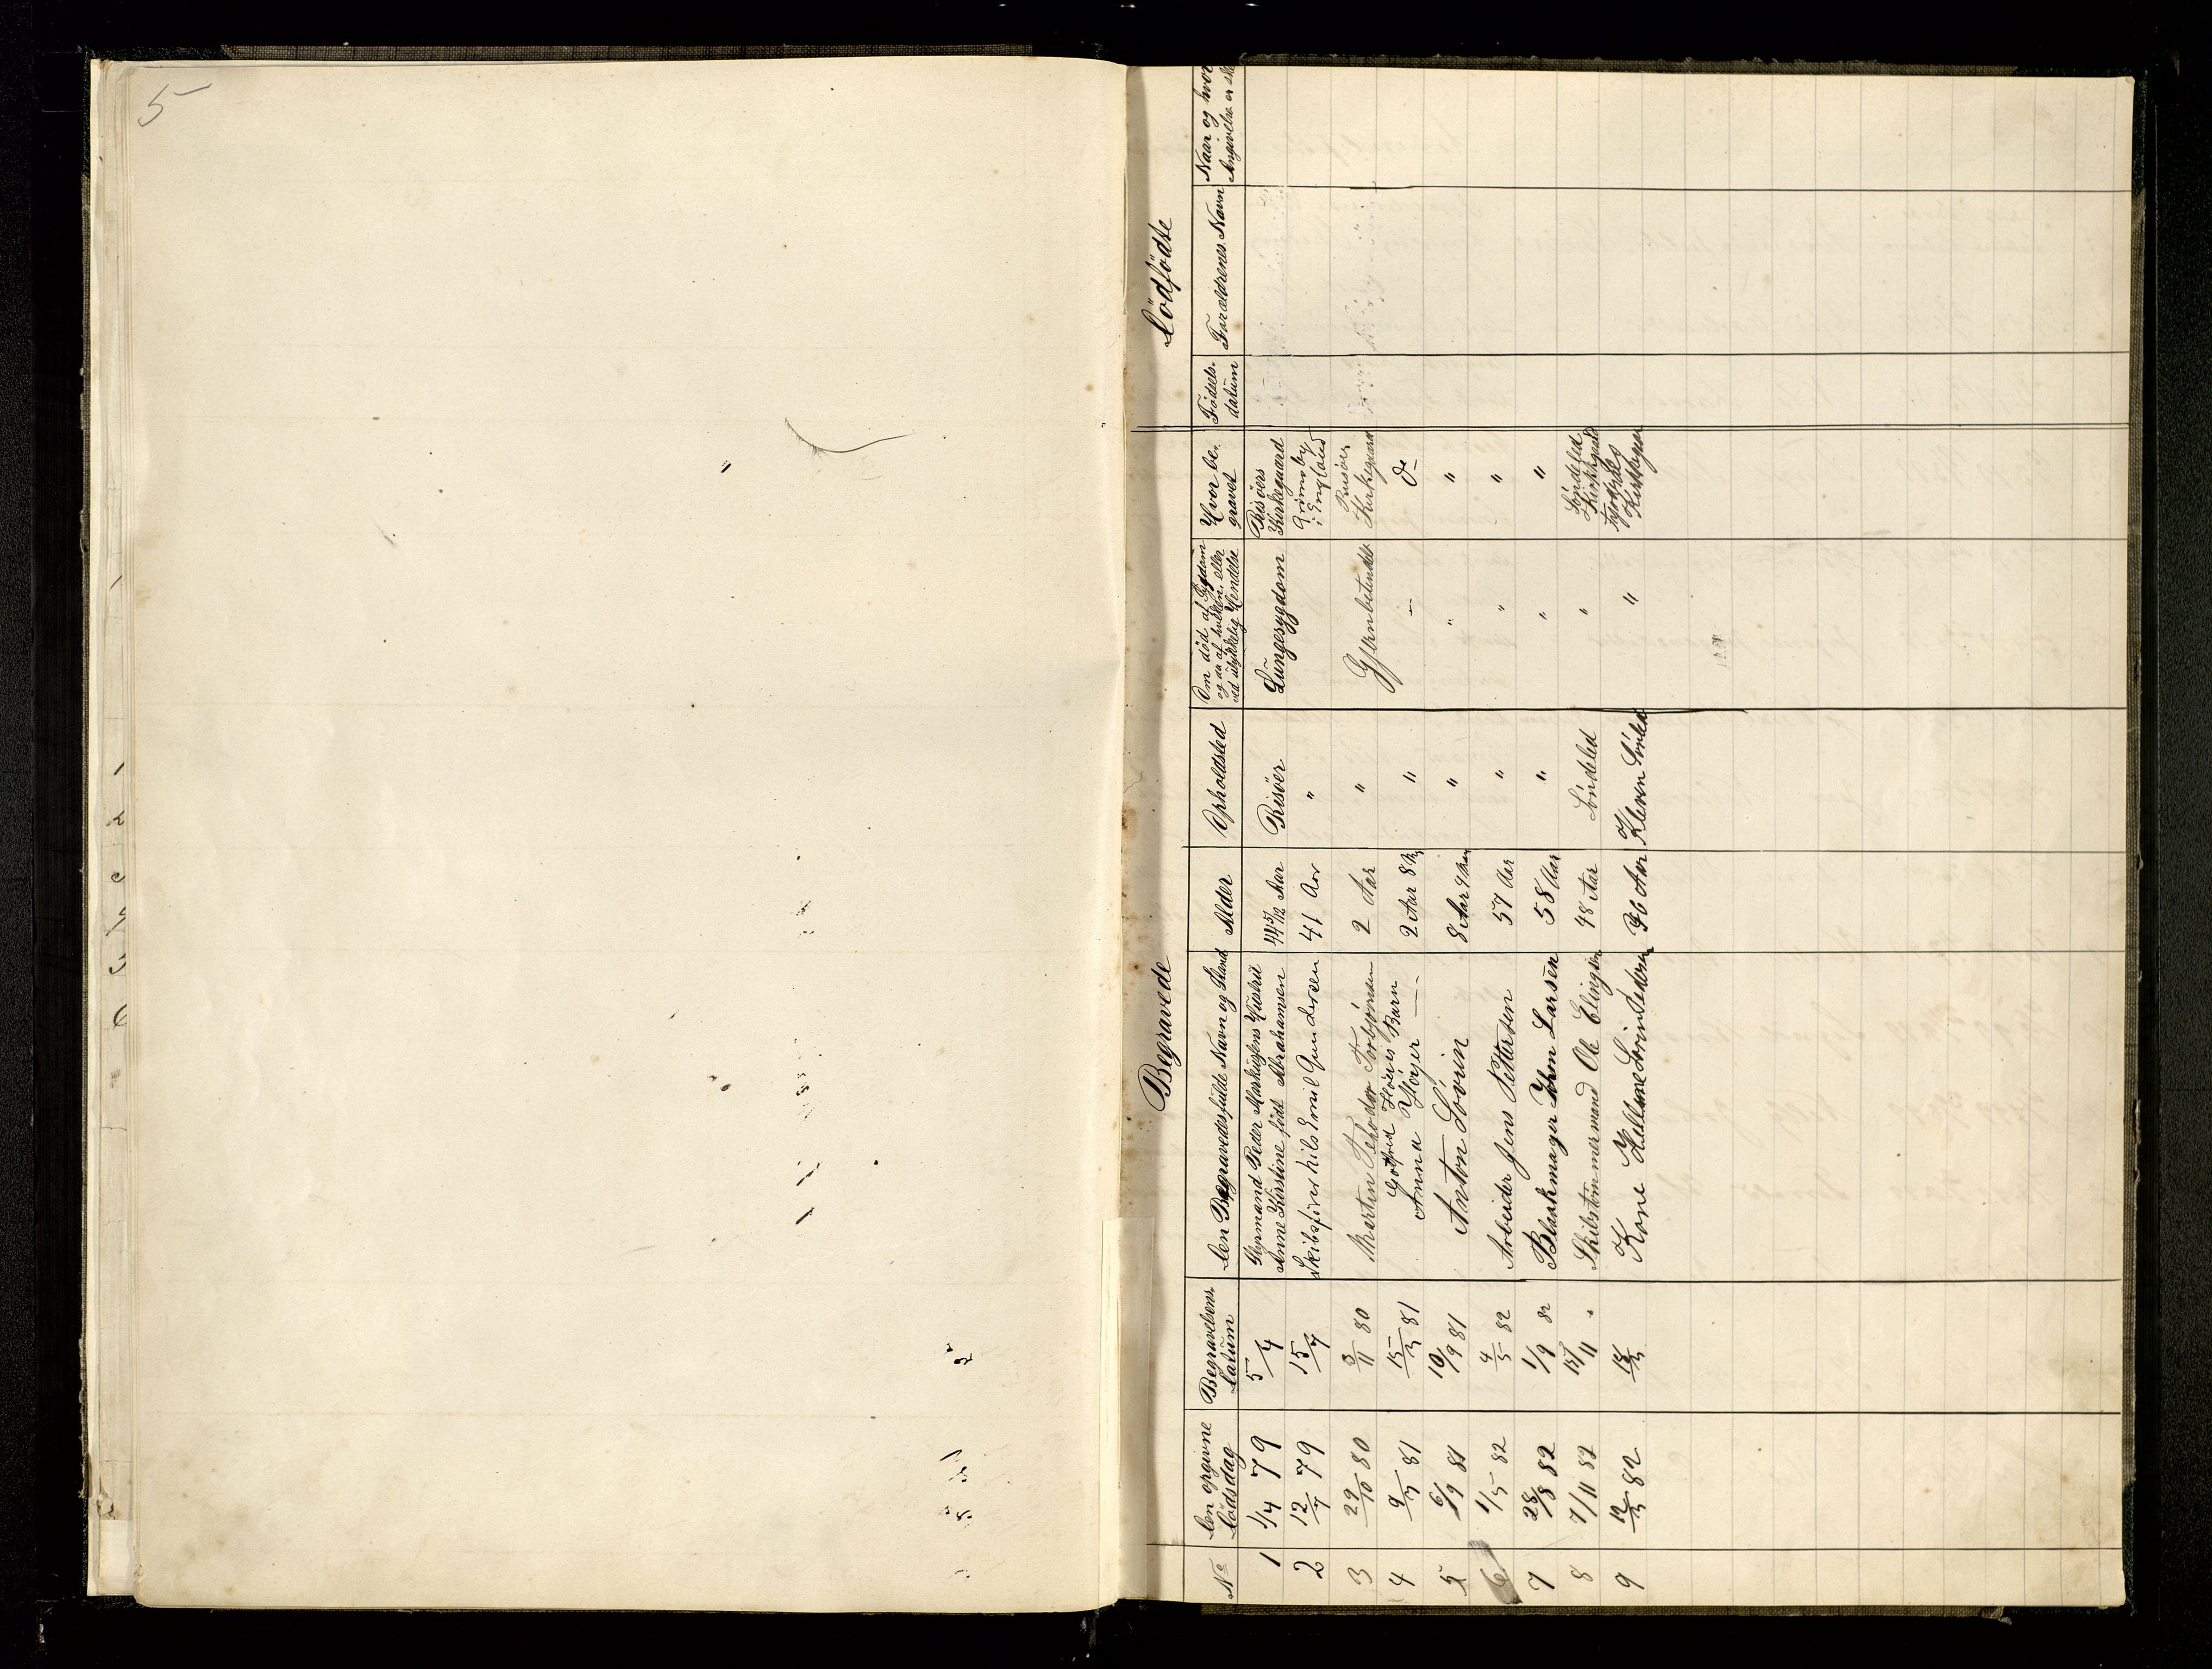 5
Begravede
Dödfödte
No
Den opgivne Dödsdag
Begravelsens Datum
Den Begravedes fulde Navn og Stand
Alder
Opholdsted
Om död af Sygdom og da af hvilken, eller ved ulykkelig Hendelse
Hvor be-gravet
Födsels-datum
Forældrenes Navn
Naar og hvor Angivelse er
1 1/4 79 5/4 Peder Markusens Hustru Anne Kirstine födt Abrahamsen 44 5/12 Aar Risöer Lungesygdom Risöers Kirkegaard
2 12/7 79 15/7 Skibsförer Nils Emil Gundersen 41 Aar " Grimsby i England
3 29/10 80 3/11 80 Martin Teodor Torbjörnsen 2 Aar " Hjernbetendelse Risöer Kirkegaard
4 9/3 81 15/3 81 Gotfred Höiers Barn Anna Höyer — 2 Aar 8 M " — Do
5 6/9 81 10/9 81 Anton Sövrin 8 Aar 9 Man " " "
6 1/5 82 4/5 82 Arbeider Jens Pettersen 57 Aar " " "
7 28/8 82 1/9 82 Blokmager Larsen 58 Aar " " "
8 7/11 82 15/11 " Skibstömmermand Ole Elingsen 48 Aar Söndeled " Söndeled Kirkegaard
9 82 Kone 36 Aar Kleven Sönde "